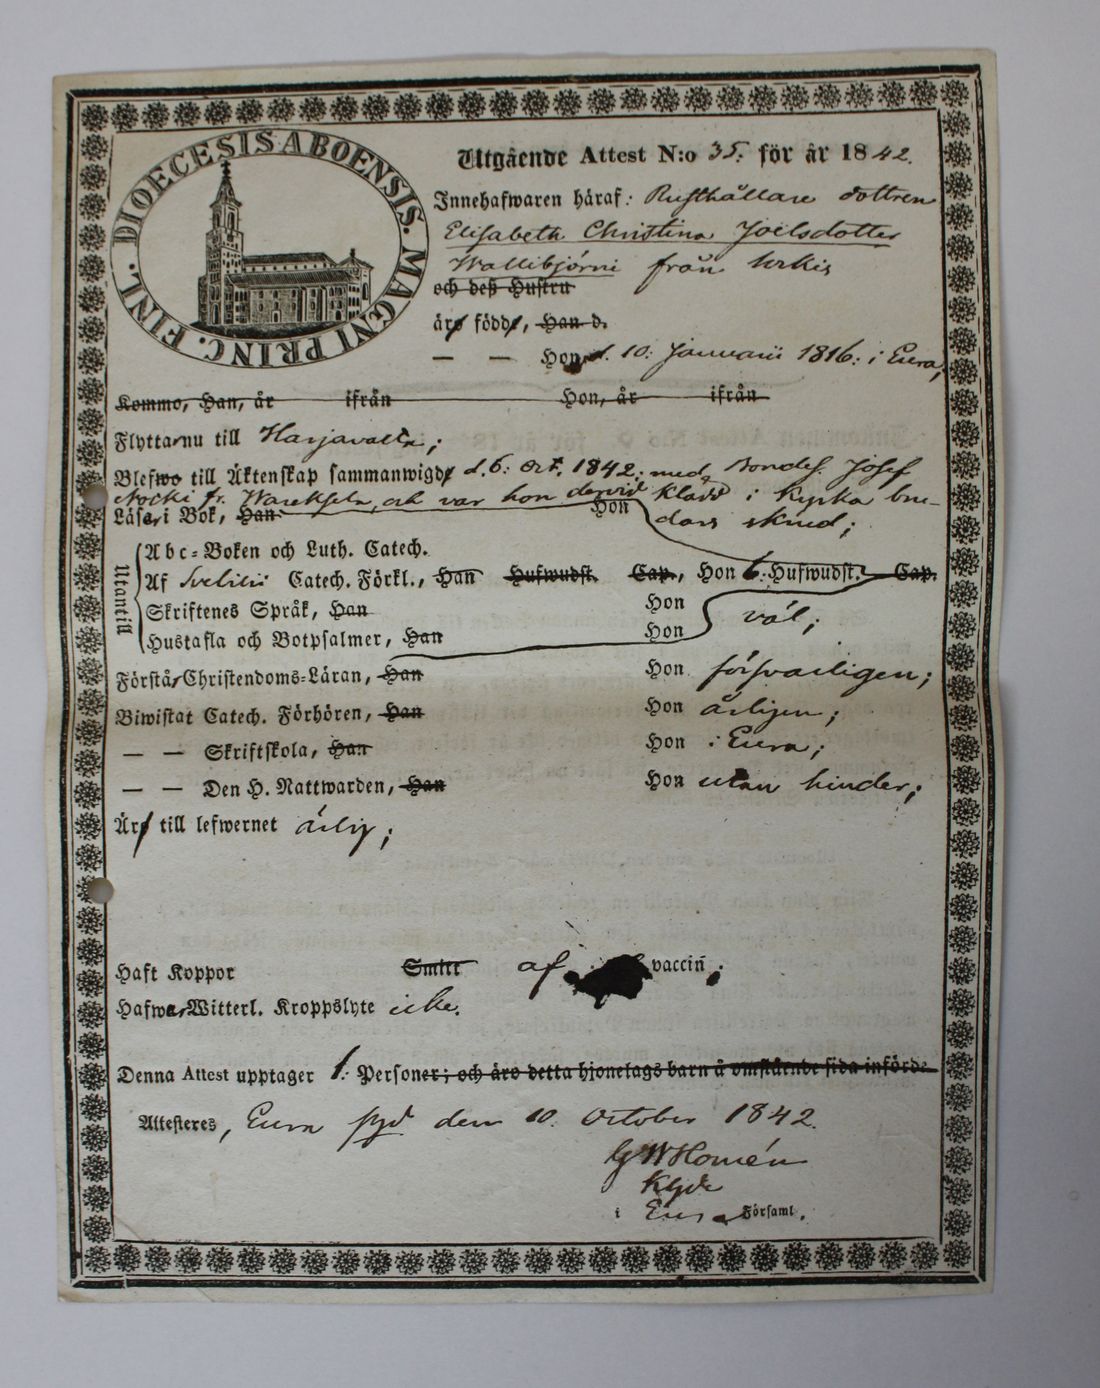 DIOECESIS ABOENSIS. MAGNI PRINC. FINL.
Utgående Attest N:o 35. för år 1842.
Innehafwaren häraf: Rusthållare dottren
Elisabeth Christina Joelsdotter
Wallibjörni från
och deß Hustru
äro födde, Han d.
— — Hon d. 10: Januarii 1816: i Eura;
Kommo, Han, år ifrån Hon, år ifrån
Flytta nu till Harjavalta;
Blefwo till Äktenskap sammanwigde d. 6: Oct. 1842: med Bondes. Josef
Nocki fr. och var hon dervid klädd i Kyrko bru-
Läsa i Bok, Han Hon dars skrud;
Utantill
Abc-Boken och Luth. Catech.
Af Svebilii Catech. Förkl., Han Hufwudst. Cap., Hon 6. Hufwudst. Cap.
Skriftenes Språk, Han Hon väl;
Hustafla och Botpsalmer, Han Hon
Förstå Christendoms-Läran, Han Hon försvarligen;
Biwistat Catech. Förhören, Han Hon årligen;
— — Skriftskola, Han Hon i Eura;
— — Den H. Nattwarden, Han Hon utan hinder;
Äro till lefwernet ärlig;
Haft Koppor Smitt af vaccin.
Hafwa Witterl. Kroppslyte icke.
Denna Attest upptager 1. Personer; och äro detta hjonelags barn å omstående sida införde
Attesteres, Eura den 10. October 1842.
G W Homén
Khde
i Eura Församl.